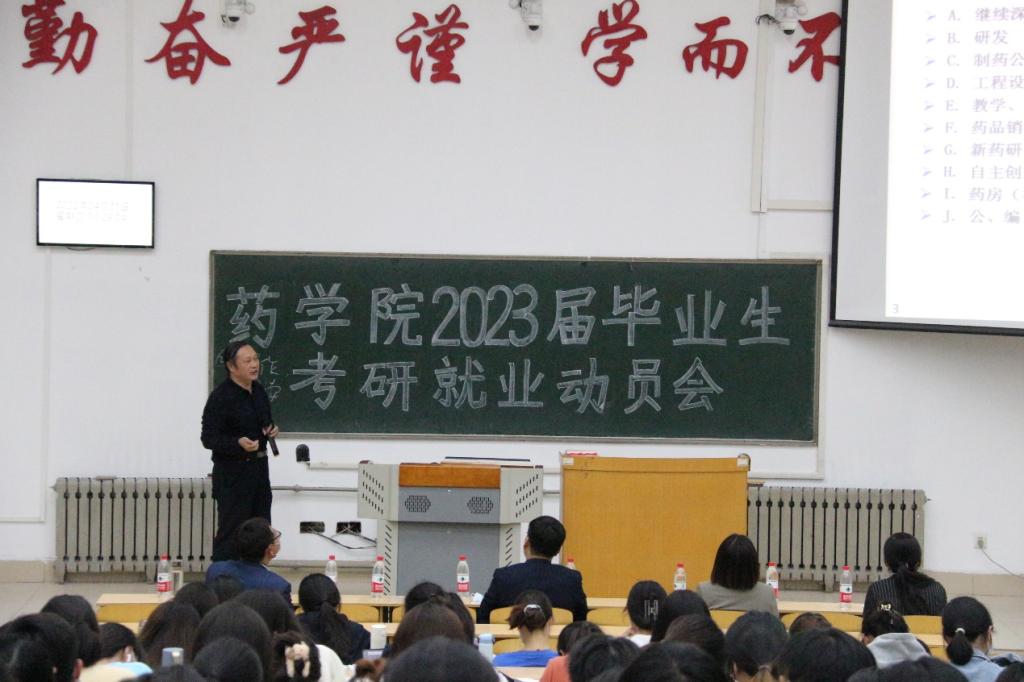 勤奋严谨 学而不
A. 继续深
B. 研发
C. 制药公
D. 工程设
E. 教学、
F. 药品销
G. 新药研
H. 自主创
I. 药房（
J. 公、编
3
药学院2023届毕业生
考研就业动员会